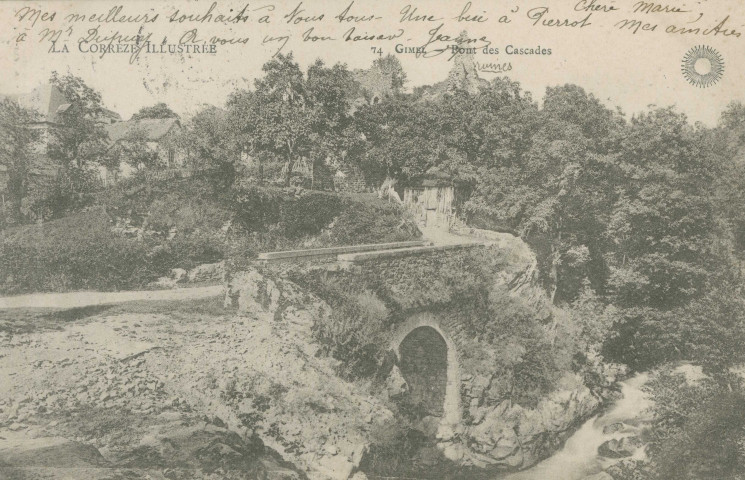 Chère Marie,
Mes meilleurs souhaits à Nous tous - Une bise à Pierrot Mes amitiés
à Mr Dupuy. A vous un bon baiser. Jeanne
LA CORRÈZE ILLUSTRÉE
74 GIMEL - Pont des Cascades
ruines